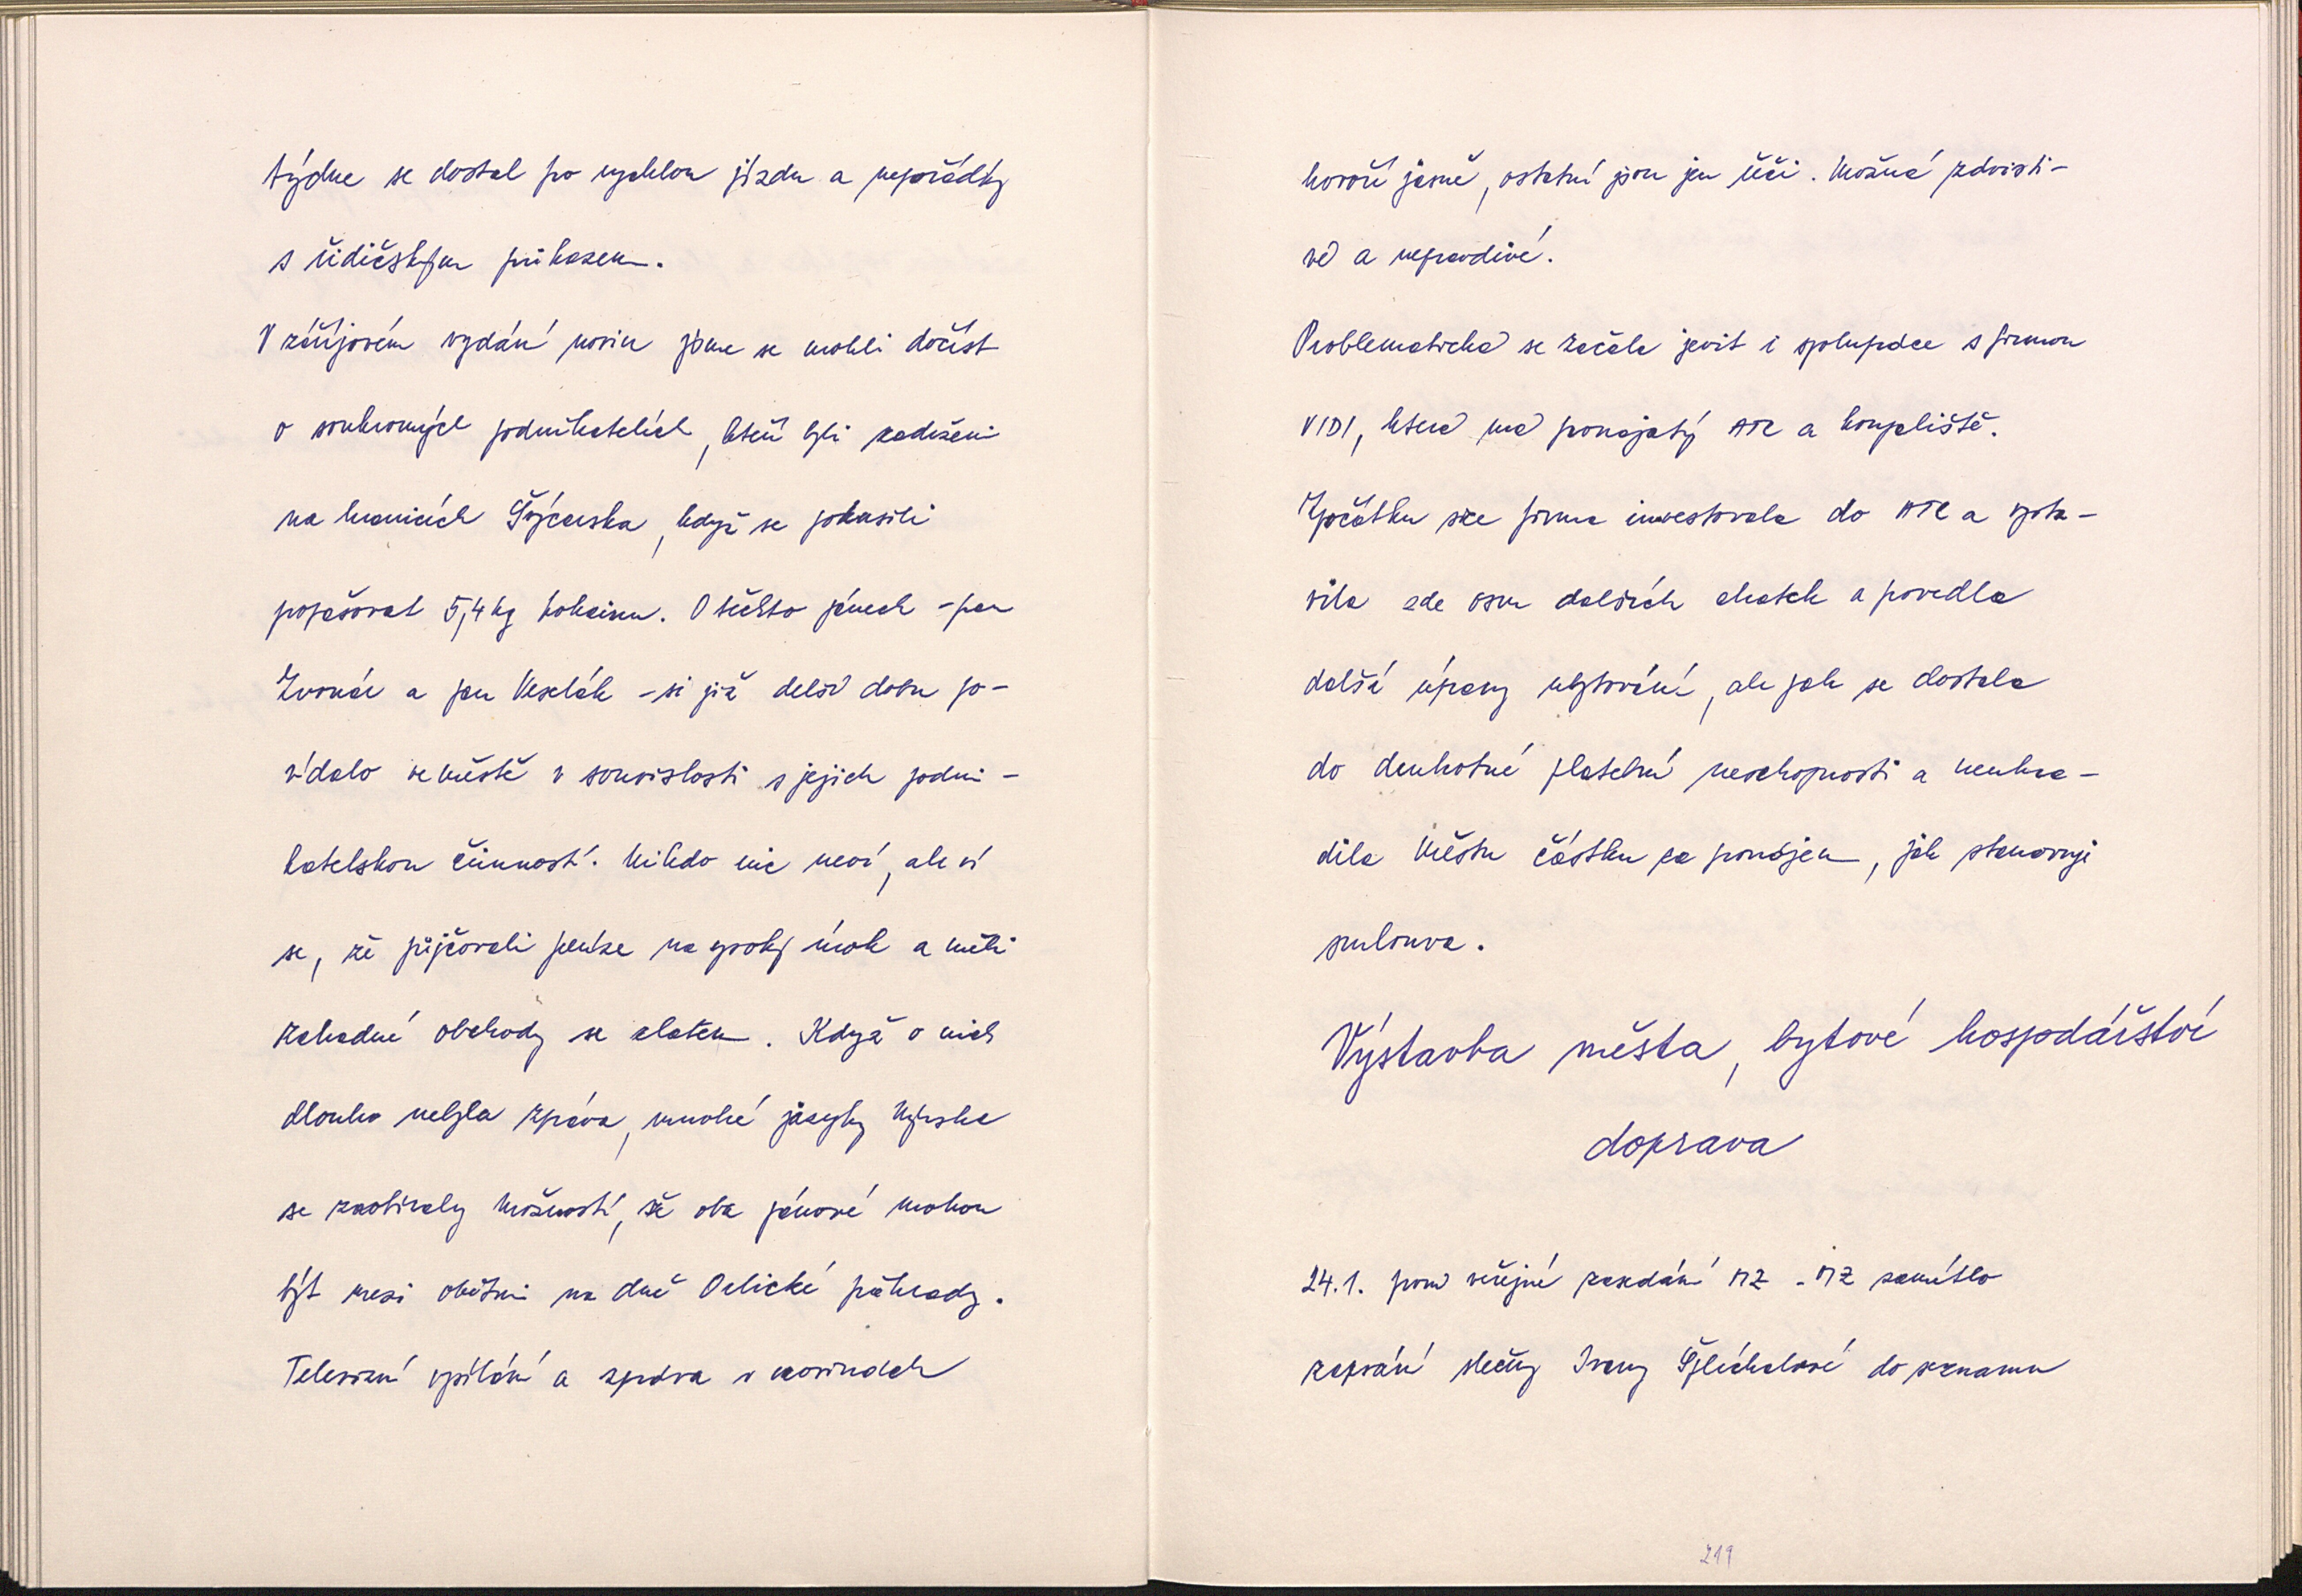 týdne se dostal pro rychlou jízdu a nepořádky
s řidičským průkazem.
V zářijovém vydání novin jsme se mohli dočíst
o soukromých podnikatelích, kteří byli zadrženi
na hranicích Švýcarska, když se pokusili
propašovat 5,4 kg kokainu. O těchto pánech - pan
Zvonár a pan Veselák - si již delší dobu po-
vídalo ve městě v souvislosti s jejich podni-
katelskou činností. Nikdo nic neví, ale ví
se, že půjčovali peníze na vysoký úrok a měli
záhadné obchody se zlatem. Když o nich
dlouho nebyla zpráva, mnohé jazyky Nýrska
se zaobíraly možností, že oba pánové mohou
být mezi oběťmi na dně Orlické přehrady.
Televizní vysílání a zpráva v novinách
hovoří jasně, ostatní jsou jen řeči. Možná závisti-
vé a nepravdivé.
Problematická se začala jevit i spolupráce s firmou
VIDI, která má pronajatý ATC a koupaliště.
Zpočátku sice firma investovala do ATC a posta-
vila zde osm dalších chatek a provedla
další úpravy ubytování, ale pak se dostala
do druhotné platební neschopnosti a neuhra-
dila Městu částku za pronájem, jak stanovuje
smlouva.
Výstavba města, bytové hospodářství
doprava
24.1. první veřejné zasedání MZ - MZ zamítlo
zapsání slečny Ivany Šlechtové do seznamu
219